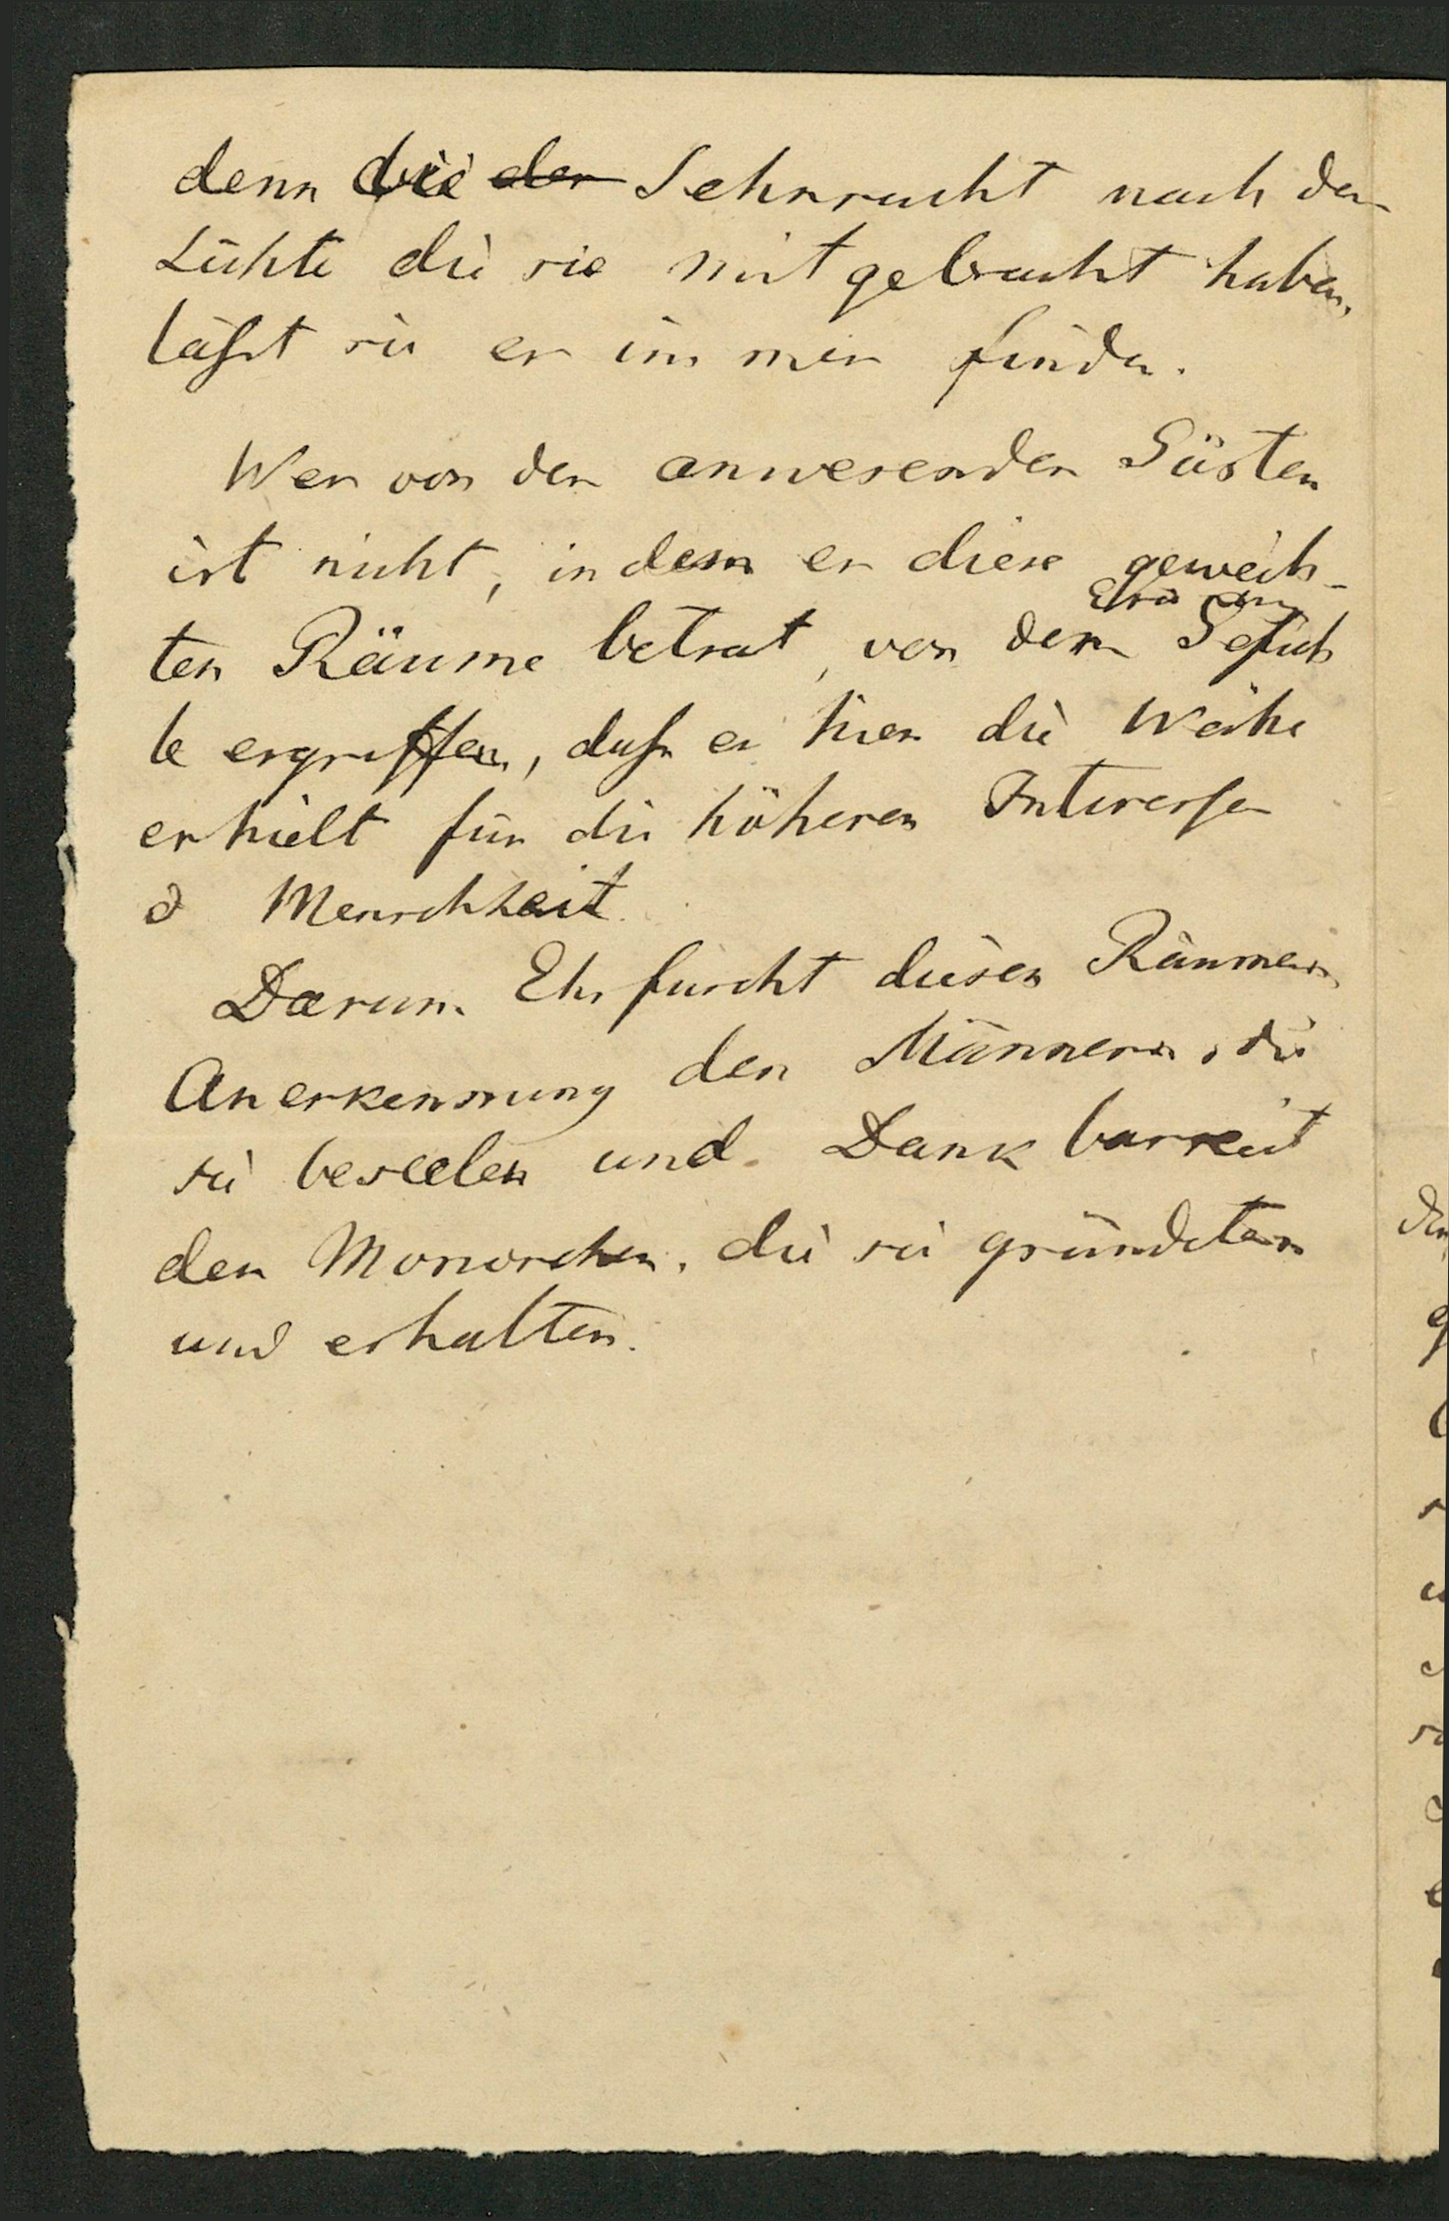 denn die der Sehnsucht nach dem
Lichte die sie mitgebracht haben,
läßt sie es immer finden.
Wer von den anwesenden Gästen
ist nicht, indem er diese geweih-
ten Räume betrat, von dem Gefüh
le ergriffen, daß er hier die Weihe
erhielt für die höheren Interessen
d Menschheit.
Darum Ehrfurcht diesen Räumen
Anerkennung den Männern, die
sie beseelen und Dankbarkeit
den Monarchen, die sie gründeten
und erhalten.